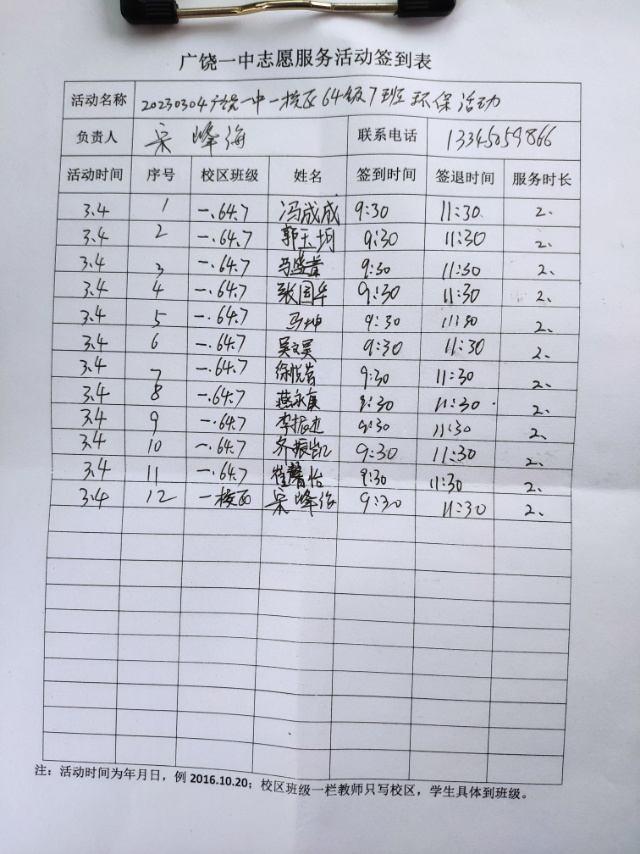 广饶一中志愿服务活动签到表
活动名称 20230304广饶一中一校区64级7班环保活动
负责人 宋峰海 联系电话 13345059866
活动时间 序号 校区班级 姓名 签到时间 签退时间 服务时长
3.4 1 一.64.7 冯成成 9:30 11:30 2、
3.4 2 一.64.7 郭玉珂 9:30 11:30 2、
3.4 3 一.64.7 9:30 11:30 2、
3.4 4 一.64.7 张国华 9:30 11:30 2、
3.4 5 一.64.7 马坤 9:30 11:30 2、
3.4 6 一.64.7 吴文昊 9:30 11:30 2、
3.4 7 一.64.7 9:30 11:30 2、
3.4 8 一.64.7 燕永康 9:30 11:30 2、
3.4 9 一.64.7 李振迪 9:30 11:30 2、
3.4 10 一.64.7 齐振凯 9:30 11:30 2、
3.4 11 一.64.7 9:30 11:30 2、
3.4 12 一校区 宋峰海 9:30 11:30 2、
注：活动时间为年月日，例 2016.10.20；校区班级一栏教师只写校区，学生具体到班级。